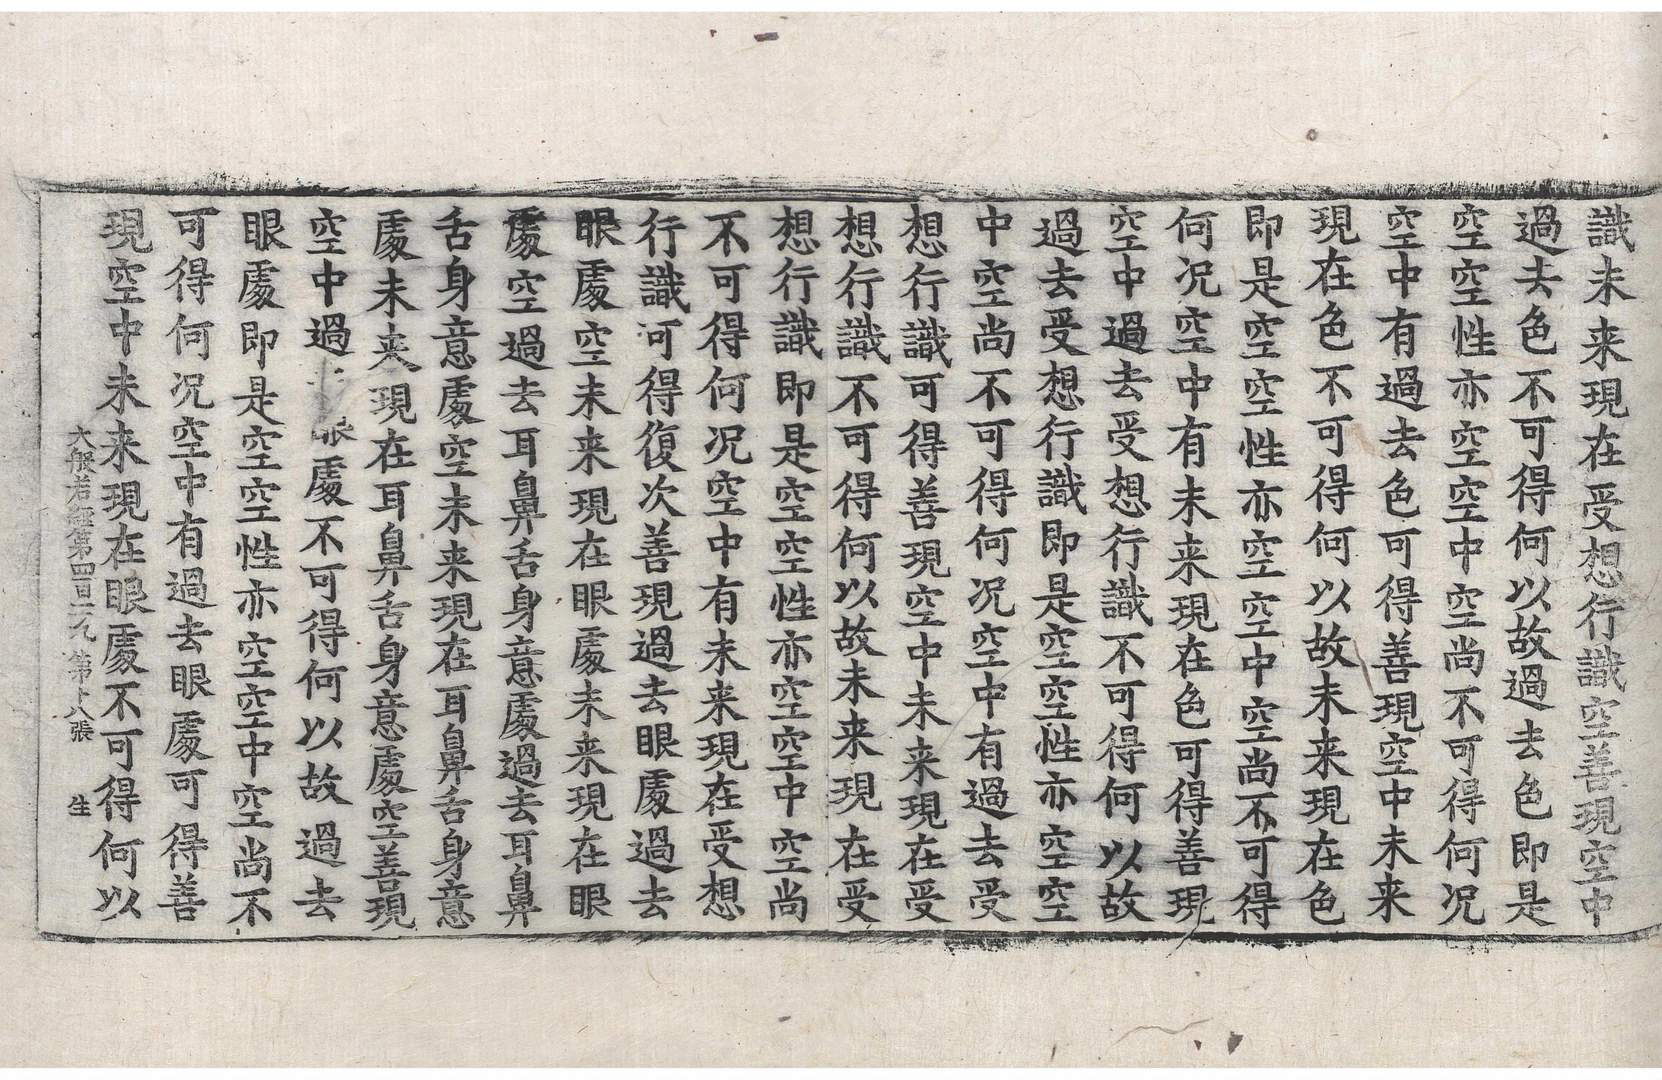 識未来現在受想行識空善現空中
過去色不可得何以故過去色即是
空空性亦空空中空尚不可得何况
空中有過去色可得善現空中未来
現在色不可得何以故未来現在色
即是空空性亦空空中空尚不可得
何况空中有未来現在色可得善現
空中過去受想行識不可得何以故
過去受想行識即是空空性亦空空
中空尚不可得何况空中有過去受
想行識可得善現空中未来現在受
想行識不可得何以故未来現在受
想行識即是空空性亦空空中空尚
不可得何况空中有未来現在受想
行識可得復次善現過去眼處過去
眼處空未来現在眼處未来現在眼
處空過去耳鼻舌身意處過去耳鼻
舌身意處空未来現在耳鼻舌身意
處未来現在耳鼻舌身意處空善現
空中過眼處不可得何以故過去
眼處即是空空性亦空空中空尚不
可得何况空中有過去眼處可得善
現空中未来現在眼處不可得何以
大般若経第四百九 第十八張 生